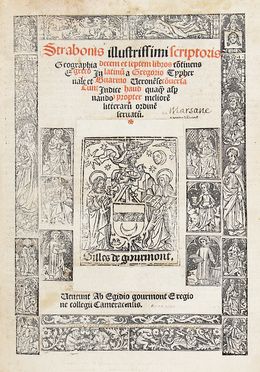 Strabonis illustrissimi scriptoris
Geographia decem et septem libros cōtinens
E greco In latinū a Gregorio Typher
nate et Guarino Veronēse cōuersa
Cum Indice haud quaq̄ asp
nando propter meliorē
litterarū ordinē
seruatū.
Marsane
Gilles de gourmont.
Veneunt Ab Egidio gourmont E regio
ne collegii Cameracensis.